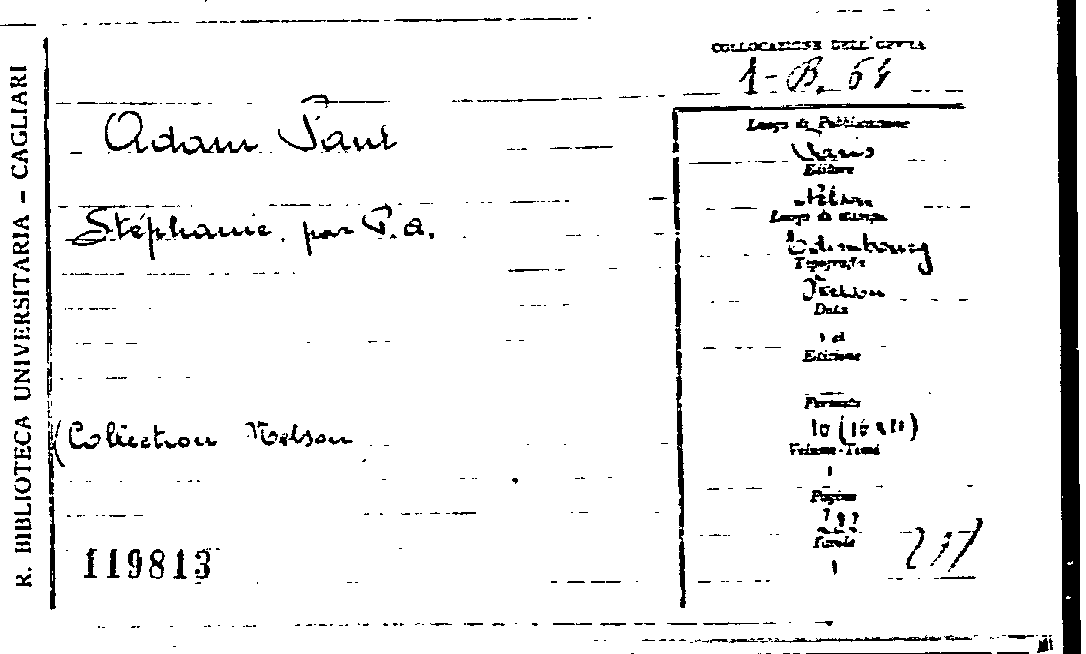 R. BIBLIOTECA UNIVERSITARIA - CAGLIARI
COLLOCAZIONE DELL'OPERA
1-B. 64
Adam Paul
Stéphanie, par P. A.
(Collection Nelson
119813
Luogo di Pubblicazione
Paris
Editore
Nelson
Luogo di stampa
Edimbourg
Tipografia
Nelson
Data
Edizione
Formato
16 (16 x 11)
Volume-Tomi
1
Pagine
Tavole
1